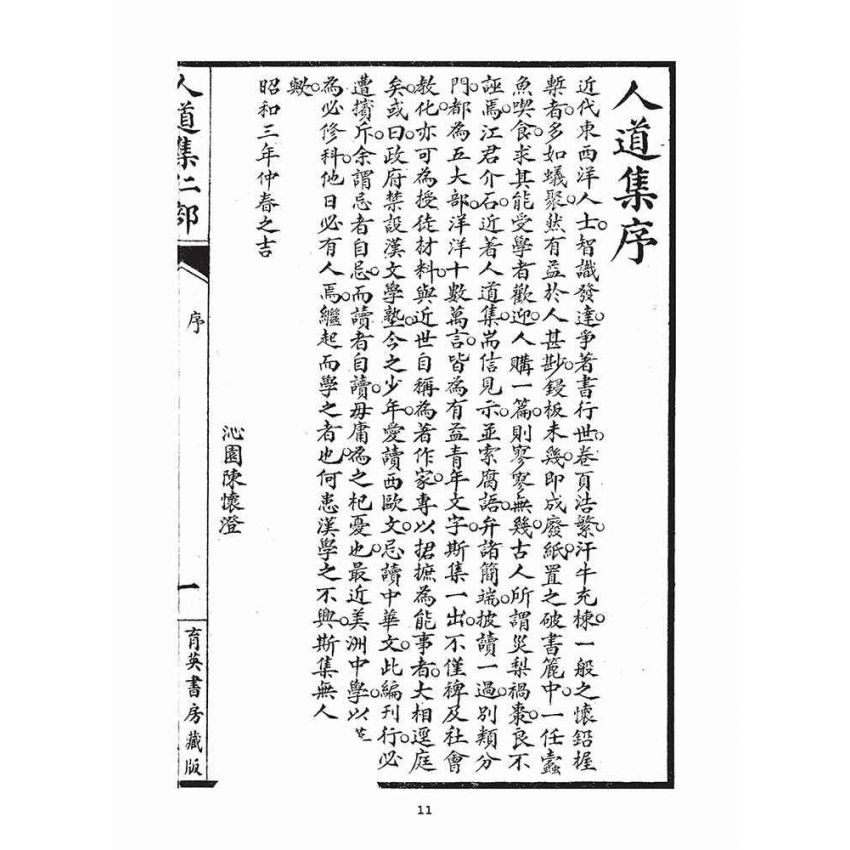 人道集序
近代東西洋人士。智識發達。爭著書行世。卷頁浩繁。汗牛充棟。一般之懷鉛握
槧者。多如蟻聚。然有益於人甚尠。鋟板未幾。即成廢紙。置之破書簏中。一任蠹
魚喫食。求其能受學者歡迎。人購一篇。則寥寥無幾。古人所謂災梨禍棗。良不
誣焉。江君介石。近著人道集。耑信見示。並索腐語。弁諸簡端。披讀一過。別類分
門。都為五大部。洋洋十數萬言。皆為有益青年文字。斯集一出。不僅裨及社會
教化。亦可為授徒材料。與近世自稱為著作家。專以捃摭為能事者。大相逕庭
矣。或曰政府禁設漢文學塾。今之少年。愛讀西歐文。忌讀中華文。此編刊行。必
遭擯斥。余謂忌者自忌。而讀者自讀。毋庸為之杞憂也。最近美洲中學。以
為必修科。他日必有人焉。繼起而學之者也。何患漢學之不興。斯集無人
歟。
昭和三年仲春之吉
沁園陳懷澄
人道集仁部
序
一
育英書房藏版
11